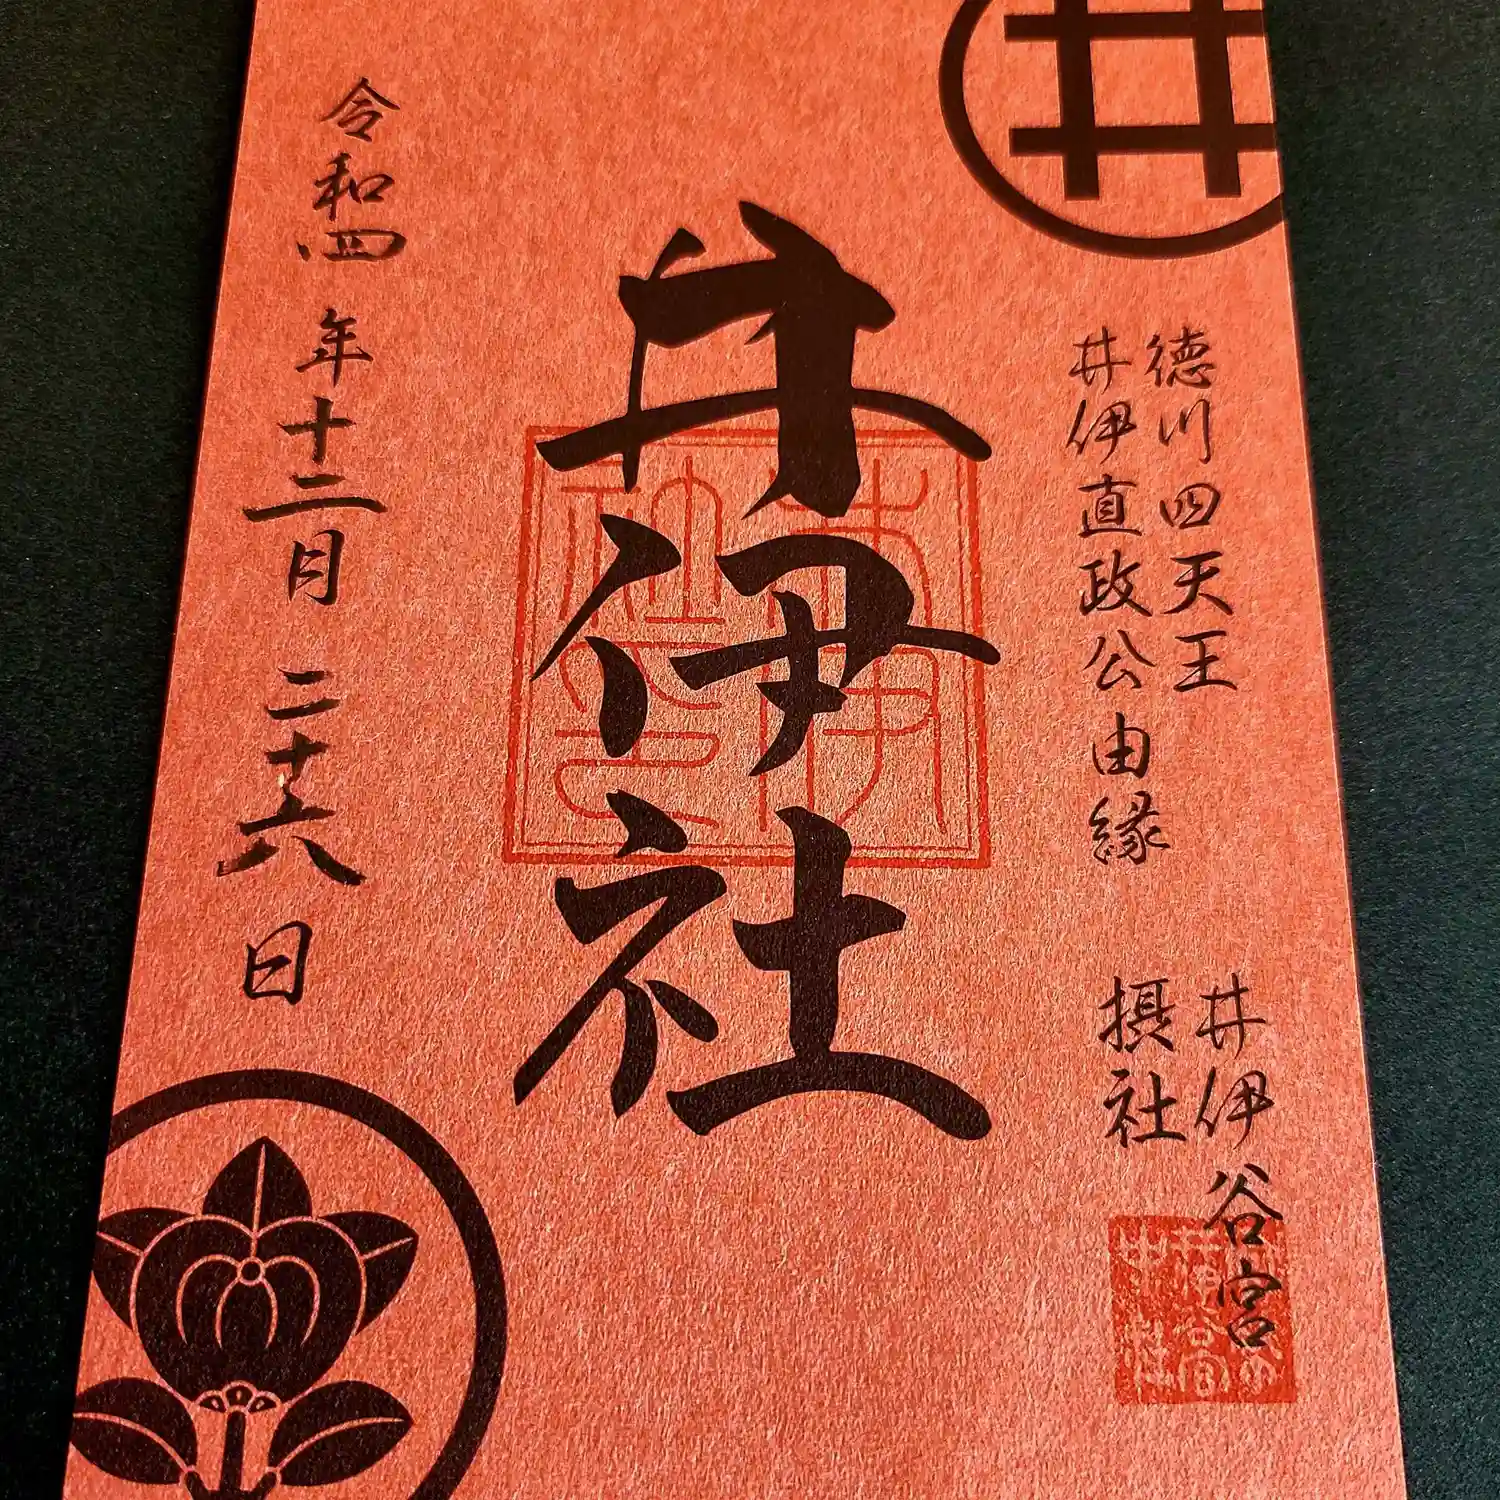 徳川四天王
井伊直政公由縁
井伊谷宮
摂社
井伊社
令和四年十二月二十六日